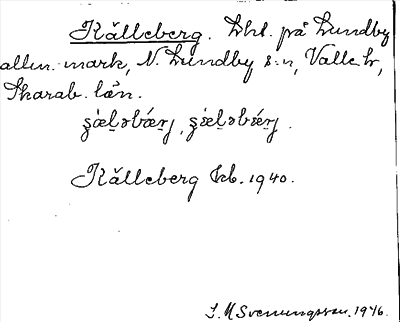 Källeberg. Lht. på Lundby
allm. mark, N. Lundby s:n, Valle hd,
Skarab. län.
Källeberg kb. 1940.
S. M Svenungsson. 1946.